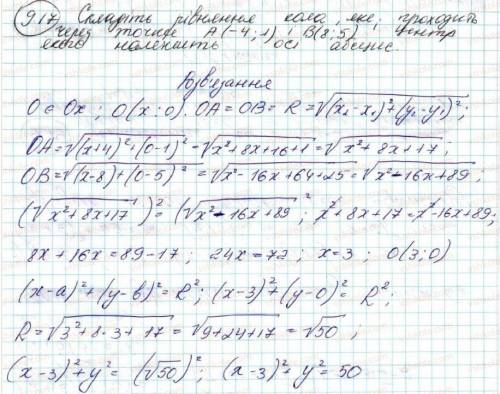 917 Складіть рівняння кола, яке проходить
через точки A(-4;1) і B(8;5), центр
якого належить осі абсцис.
Розв'язання
O ∈ Ox ; O(x;0). OA = OB = R = √((x₂-x₁)²+(y₂-y₁)²);
OA = √((x+4)²+(0-1)²) = √(x²+8x+16+1) = √(x²+8x+17);
OB = √((x-8)+(0-5)²) = √(x²-16x+64+25) = √(x²-16x+89);
(√(x²+8x+17))² = (√(x²-16x+89)²; x²+8x+17=x²-16x+89;
8x+16x=89-17; 24x=72; x=3; O(3;0)
(x-a)²+(y-b)²=R²; (x-3)²+(y-0)²= R²;
R=√(3²+8·3+17)=√(9+24+17)=√50;
(x-3)²+y²= (√50)²; (x-3)²+y²=50